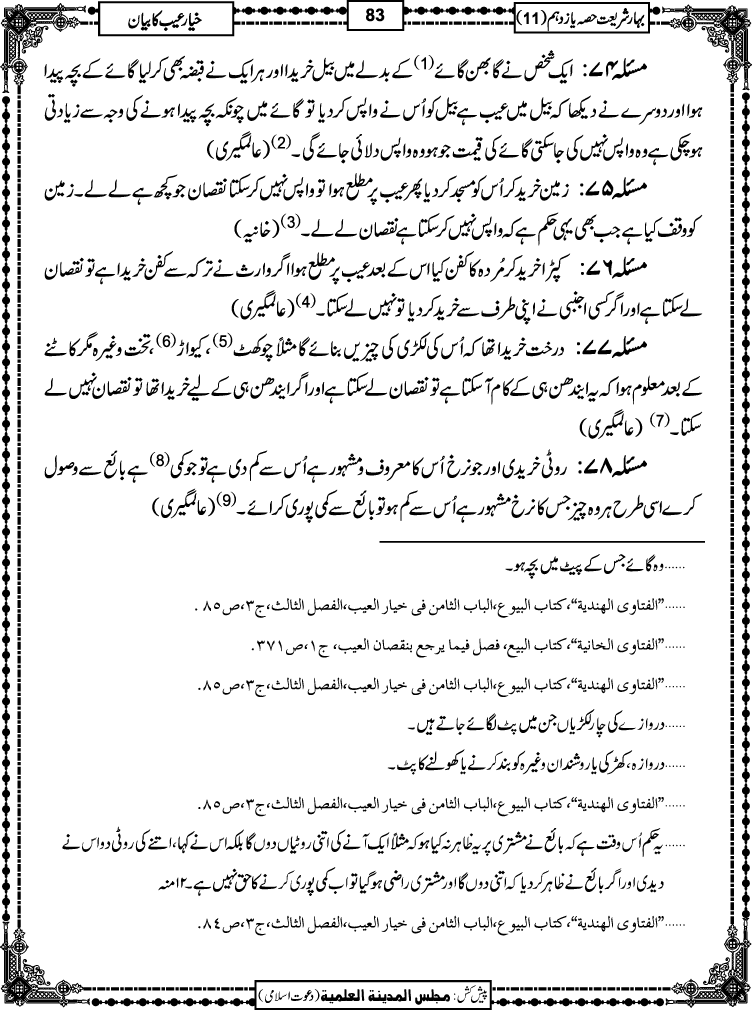 بہارِ شریعت حصہ یازدہم (11)
83
خیارِ عیب کا بیان
مسئلہ ۷۴: ایک شخص نے گابھن گائے(1) کے بدلے میں بیل خریدا اور ہر ایک نے قبضہ بھی کرلیا گائے کے بچہ پیدا
ہوا اور دوسرے نے دیکھا کہ بیل میں عیب ہے بیل کو اُس نے واپس کر دیا تو گائے میں چونکہ بچہ پیدا ہونے کی وجہ سے زیادتی
ہو چکی ہے وہ واپس نہیں کی جاسکتی گائے کی قیمت جو ہو وہ واپس دلائی جائے گی۔(2) (عالمگیری)
مسئلہ ۷۵: زمین خرید کر اُس کو مسجد کر دیا پھر عیب پر مطلع ہوا تو واپس نہیں کرسکتا نقصان جو کچھ ہے لے لے۔ زمین
کو وقف کیا ہے جب بھی یہی حکم ہے کہ واپس نہیں کرسکتا ہے نقصان لے لے۔(3) (خانیہ)
مسئلہ ۷۶: کپڑا خرید کر مُردہ کا کفن کیا اس کے بعد عیب پر مطلع ہوا اگر وارث نے ترکہ سے کفن خریدا ہے تو نقصان
لے سکتا ہے اور اگر کسی اجنبی نے اپنی طرف سے خرید کر دیا تو نہیں لے سکتا۔(4) (عالمگیری)
مسئلہ ۷۷: درخت خریدا تھا کہ اُس کی لکڑی کی چیزیں بنائے گا مثلاً چوکھٹ(5)، کیواڑ(6)، تخت وغیرہ مگر کاٹنے
کے بعد معلوم ہوا کہ یہ ایندھن ہی کے کام آسکتا ہے تو نقصان لے سکتا ہے اور اگر ایندھن ہی کے لیے خریدا تھا تو نقصان نہیں لے
سکتا۔(7) (عالمگیری)
مسئلہ ۷۸: روٹی خریدی اور جو نرخ اُس کا معروف و مشہور ہے اُس سے کم دی ہے تو جو کمی(8) ہے بائع سے وصول
کرے اسی طرح ہر وہ چیز جس کا نرخ مشہور ہے اُس سے کم ہو تو بائع سے کمی پوری کرائے۔(9) (عالمگیری)
......وہ گائے جس کے پیٹ میں بچہ ہو۔
......”الفتاوی الھندیة“،کتاب البیوع،الباب الثامن فی خیار العیب،الفصل الثالث،ج۳،ص۸۵ .
......”الفتاوی الخانیة“،کتاب البیع، فصل فیما یرجع بنقصان العیب، ج۱،ص۳۷۱.
......”الفتاوی الھندیة“،کتاب البیوع،الباب الثامن فی خیار العیب،الفصل الثالث،ج۳،ص۸۵.
......دروازے کی چار لکڑیاں جن میں پٹ لگائے جاتے ہیں۔
......دروازہ، کھڑکی یا روشندان وغیرہ کو بند کرنے یا کھولنے کا پٹ۔
......”الفتاوی الھندیة“،کتاب البیوع،الباب الثامن فی خیار العیب،الفصل الثالث،ج۳،ص۸۵.
......یہ حکم اُس وقت ہے کہ بائع نے مشتری پر یہ ظاہر نہ کیا ہو کہ مثلاً ایک آنے کی اتنی روٹیاں دوں گا بلکہ اس نے کہا، اتنے کی روٹی دو اس نے
دیدی اور اگر بائع نے ظاہر کر دیا کہ اتنی دوں گا اور مشتری راضی ہو گیا تو اب کمی پوری کرنے کا حق نہیں ہے۔۱۲منہ
......”الفتاوی الھندیة“،کتاب البیوع،الباب الثامن فی خیار العیب،الفصل الثالث،ج۳،ص۸٤.
پیش کش: مجلس المدینة العلمیة (دعوت اسلامی)